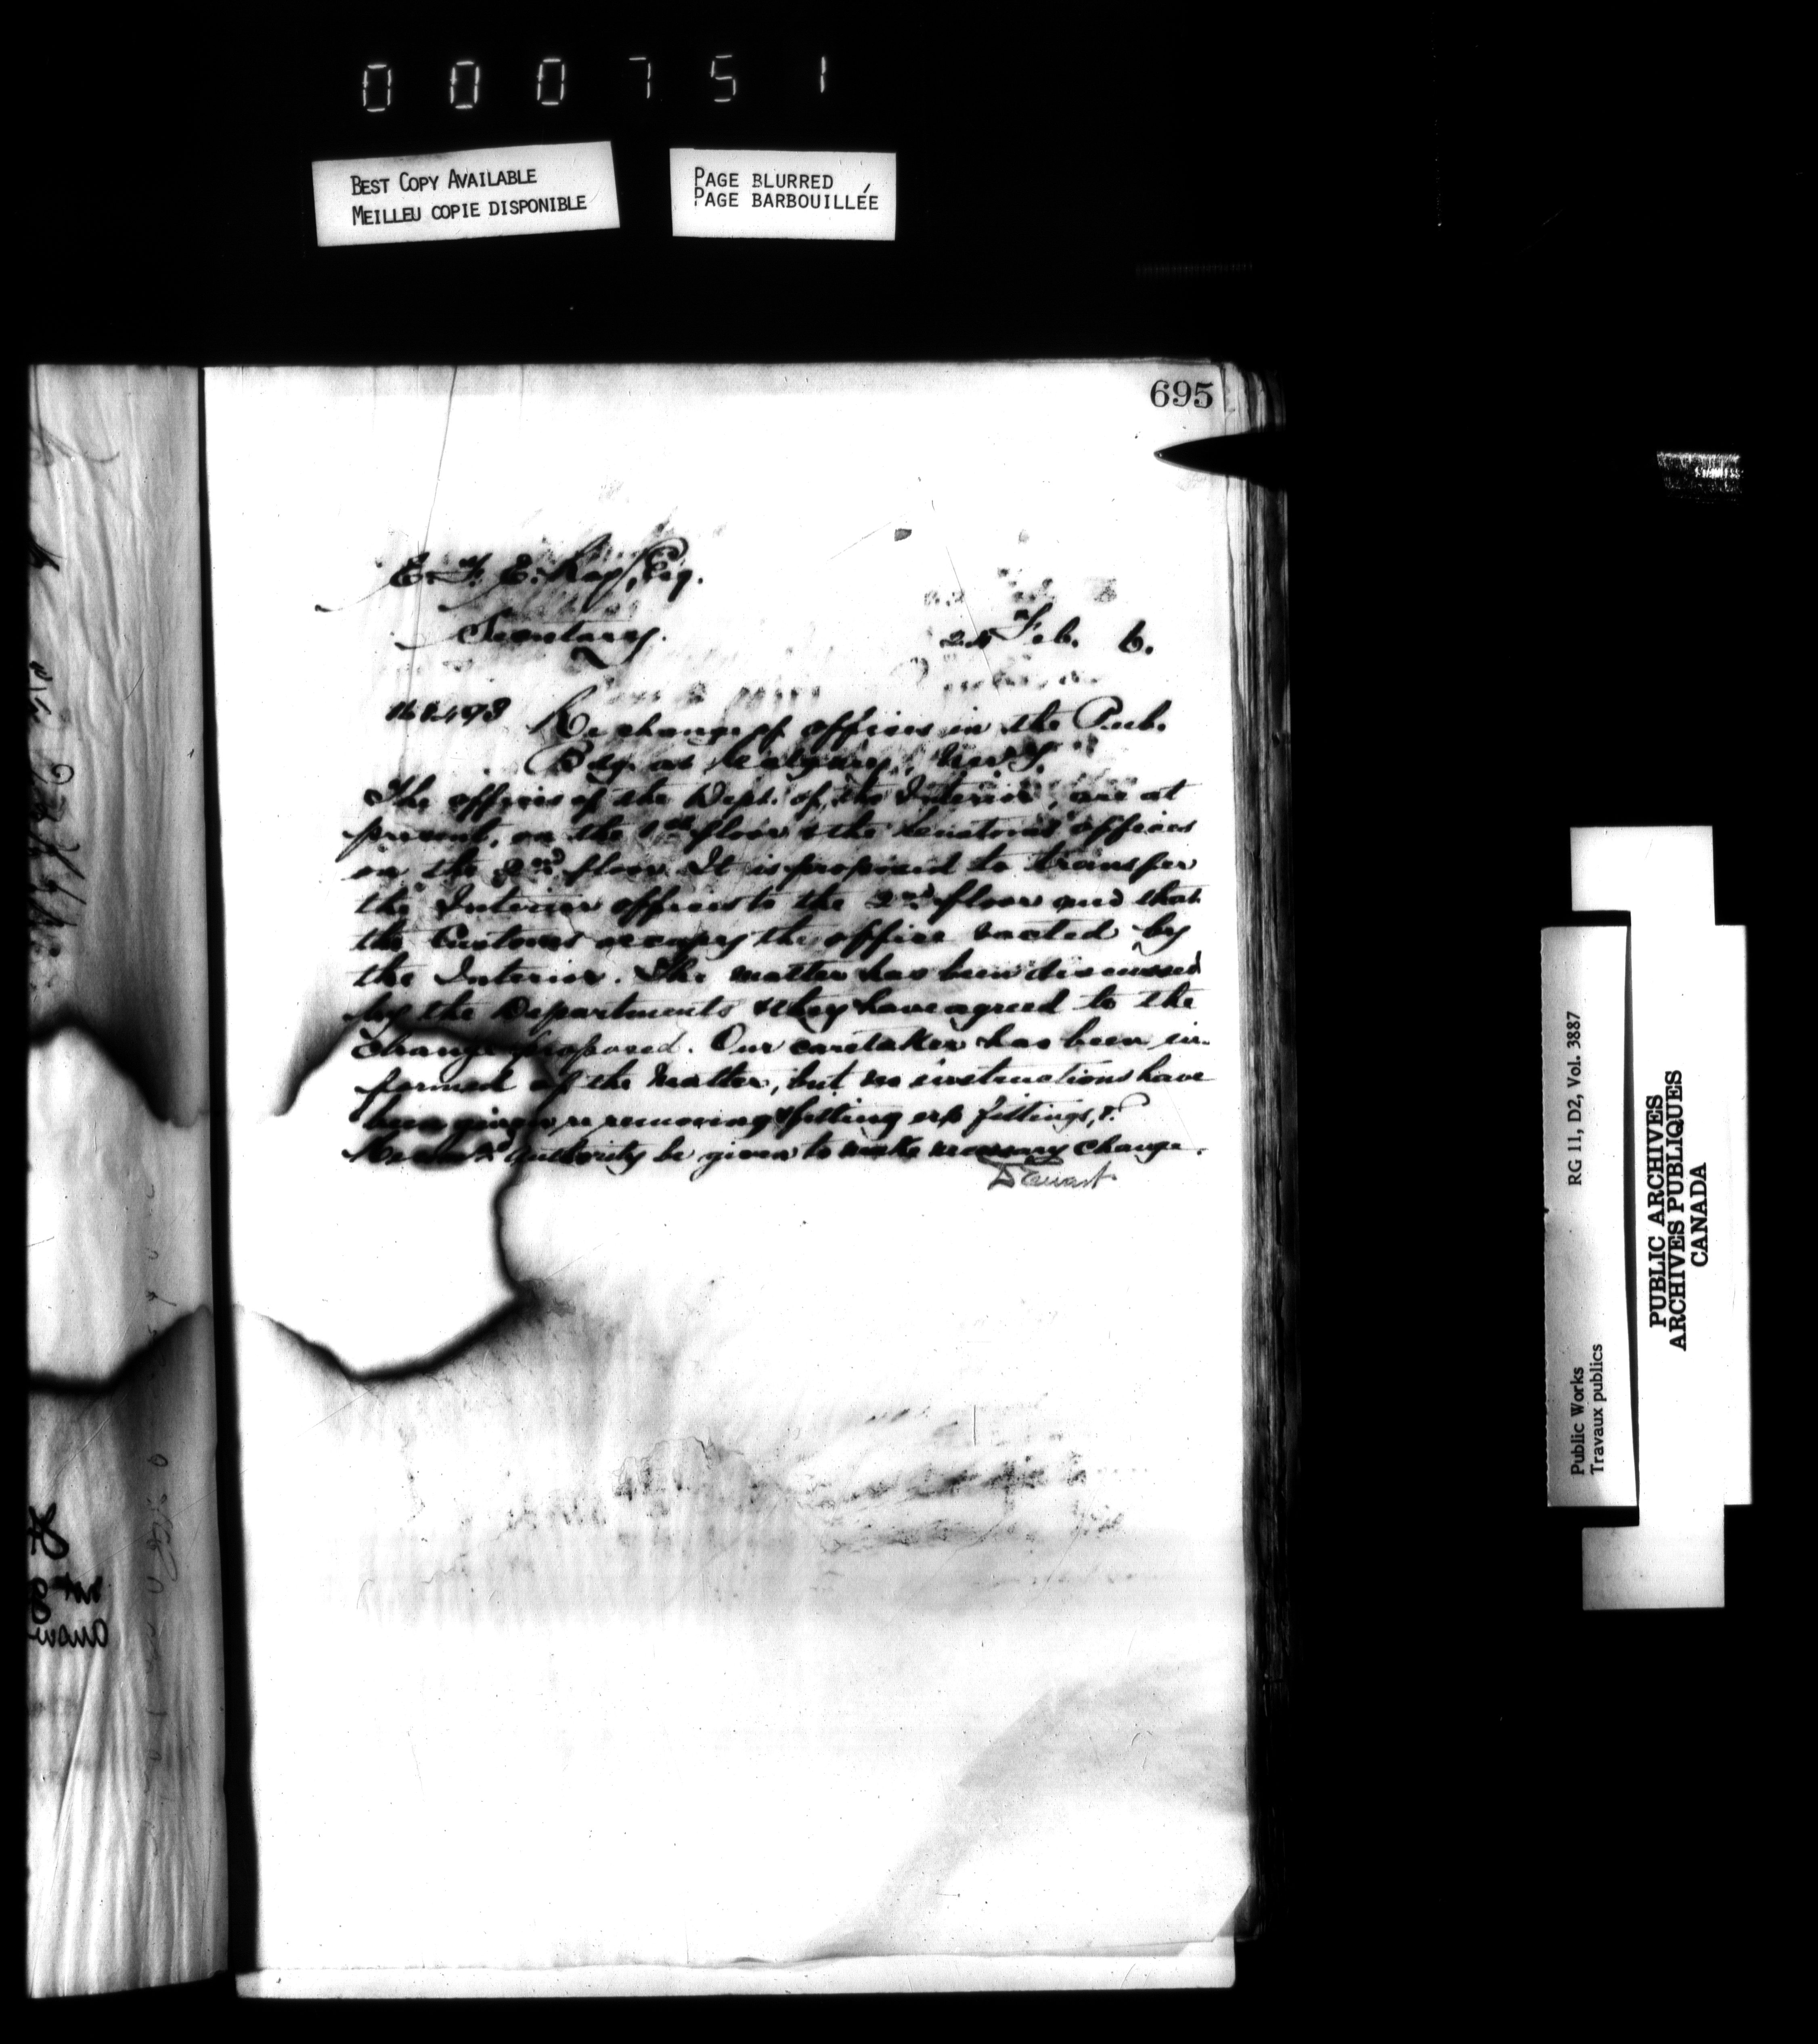 000751
BEST COPY AVAILABLE
MEILLEU COPIE DISPONIBLE
PAGE BLURRED
PAGE BARBOUILLÉE
695
E. F. E. Roy, Esq.
Secretary.
24 Feb. 6.
Re change of offices in the Pub.
Bdg. at Calgary, NWT.
The offices of the Dept. of the Interior, are at
present, on the 1st floor & the Customs offices
on the 2nd floor. It is proposed to transfer
the Interior offices to the 2nd floor and that
the Customs occupy the office vacted by
the Interior. The matter has been discussed
by the Departments & they have agreed to the
change proposed. Our caretaker has been in-
formed of the matter, but no instructions have
been given re removing & fitting up fittings, &.
authority be given to make necessary change.
D Ewart
Public Works
Travaux publics
RG 11, D2, Vol. 3887
PUBLIC ARCHIVES
ARCHIVES PUBLIQUES
CANADA